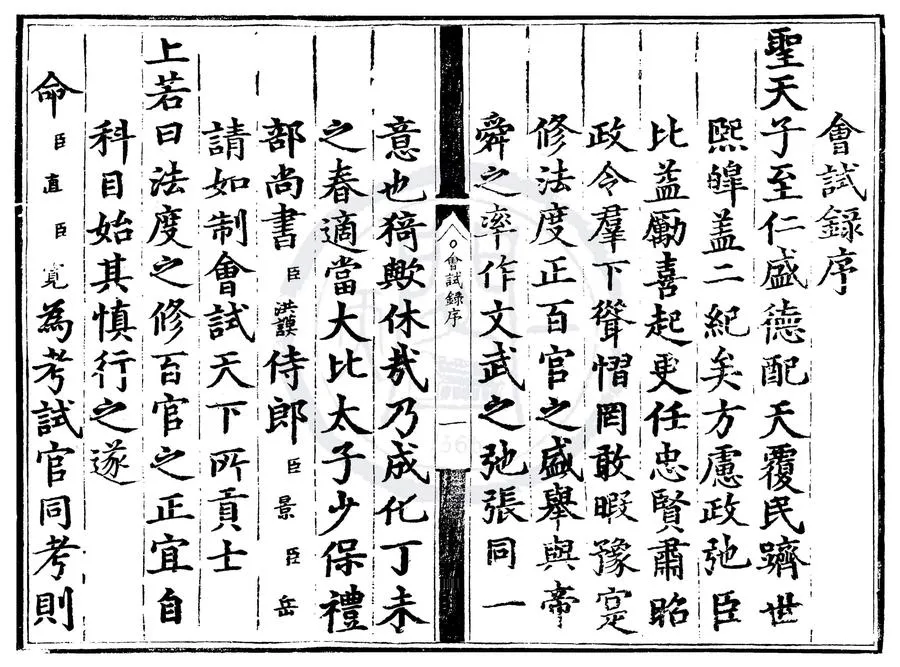 會試録序
聖天子至仁盛德配天覆民躋世
熙皥盖二紀矣方慮政弛臣
比益勵喜起更任忠賢肅昭
政令羣下聳慴罔敢暇豫寔
修法度正百官之盛舉與帝
舜之率作文武之弛張同一
會試録序
一
意也猗歟休㢤乃成化丁未
之春適當大比太子少保禮
部尚書臣洪謨侍郎臣景臣岳
請如制會試天下所貢士
上若曰法度之修百官之正宜自
科目始其慎行之遂
命臣直臣寛為考試官同考則